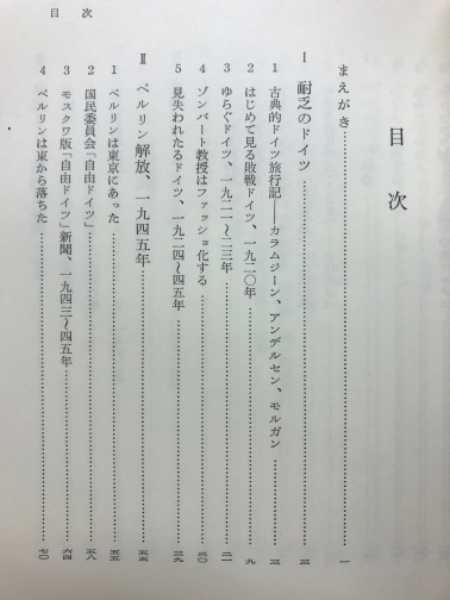 目次
目次
まえがき……一
Ⅰ 耐乏のドイツ……三
1 古典的ドイツ旅行記――カラムジーン、アンデルセン、モルガン……三
2 はじめて見る敗戦ドイツ、一九二〇年……九
3 ゆらぐドイツ、一九二一〜二三年……二一
4 ゾンバート教授はファッショ化する……三〇
5 見失われたるドイツ、一九二四〜四五年……三九
Ⅱ ベルリン解放、一九四五年……五五
1 ベルリンは東京にあった……五五
2 国民委員会「自由ドイツ」……五八
3 モスクワ版「自由ドイツ」新聞、一九四三〜四五年……六四
4 ベルリンは東から落ちた……七〇